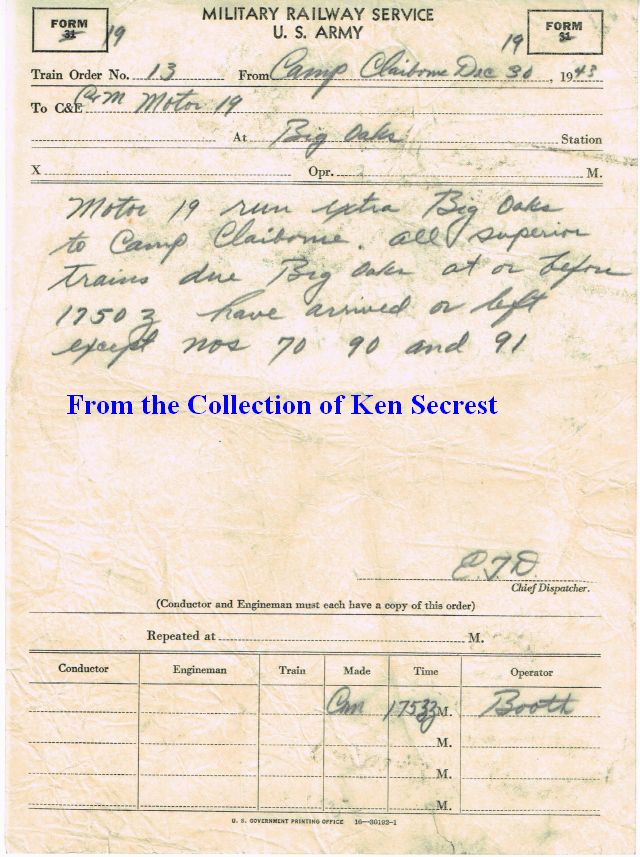 FORM 31 19
MILITARY RAILWAY SERVICE
U. S. ARMY
19 FORM 31
Train Order No. 13 From Camp Claiborne Dec 30, 1943
To C&E C&M Motor 19
At Big Oaks Station
X Opr. M.
Motor 19 run extra Big Oaks
to Camp Claiborne. all superior
trains due Big Oaks at or before
1750 z have arrived or left
except nos 70 90 and 91
From the Collection of Ken Secrest
E.T.D.
Chief Dispatcher.
(Conductor and Engineman must each have a copy of this order)
Repeated at M.
Conductor Engineman Train Made Time Operator
Com 1753z M. Booth
M.
M.
M.
U. S. GOVERNMENT PRINTING OFFICE 16—30192-1